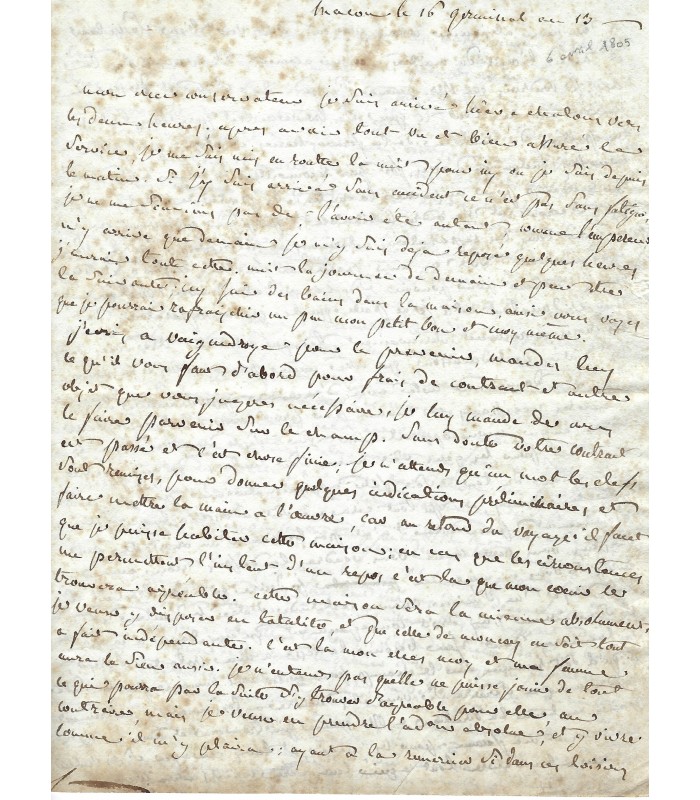 macon le 16 germinal an 13
6 avril 1805
mon cher conservateur je suis arrivé hier a chalons vers
les deux heures. apres avoir tout vu et bien assuré le
service, je me suis mis en route la nuit pour icy ou je suis depuis
le matin. si j'y suis arrivé sans accident ce n'est pas sans fatigue
je ne me souviens pas de l'avoir eté autant, comme l'empereur
n'y arrive que demain je m'y suis deja reposé quelques heures
j'aurais toute cette nuit la journée de demain et peut etre
la suivante, icy des bains dans la maison, ainsi vous voyez
que je pourrai rafraichir un peu mon petit bon et moy même.
j'ecris a pour le prévenir, mandez luy
ce qu'il vous faut d'abord pour frais de contract et autre
objet que vous jugerez nécessaire, je luy mande de vous
le faire parvenir sur le champ. sans doute votre contract
est passé et c'est chose finie, je n'attends qu'un mot les clefs
sont remises, pour donner quelques indications préliminaires et
faire mettre la main a l'œuvre, car au retour du voyage il faut
que je puisse habiter cette maison; en cas que les circonstances
me permettent l'instant d'un repos c'est la que mon coeur le
trouvera agréable. cette maison sera la mienne absolument,
je veux y disposer en totalité, et que celle de en soit tout
a fait indépendante. c'est là mon chez moy et ma femme
aura le sien aussi. je n'entends pas quelle ne puisse jouir de tout
ce qui pourra par la suite s'y trouver d'agréable pour elle, au
contraire, mais je veux en prendre l'adon absolue, et y vivre
comme il m'y plaira; ayant a la si dans ces loisirs